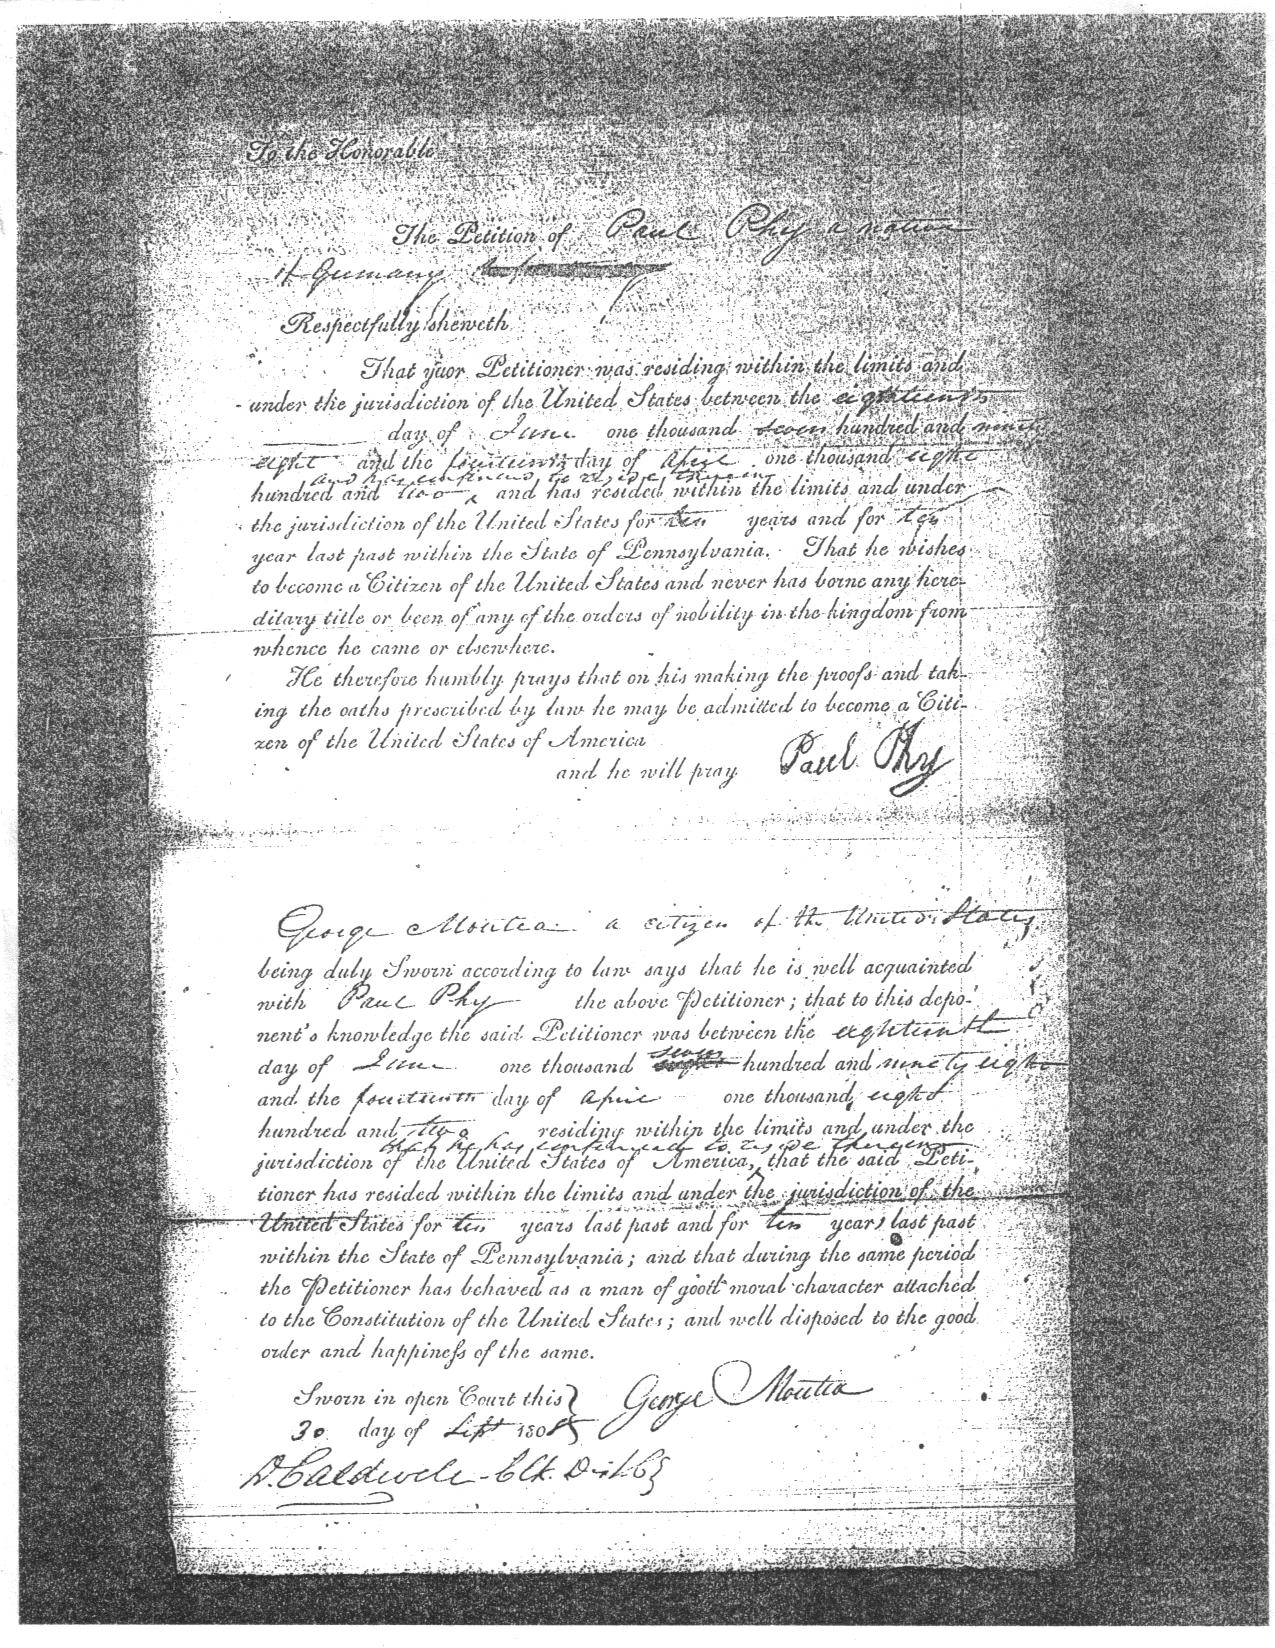 To the Honorable
The Petition of Paul Phy a native
of Germany
Respectfully sheweth
That yuor Petitioner was residing within the limits and
under the jurisdiction of the United States between the eighteenth
day of June one thousand seven hundred and ninety
eight and the fourteenth day of April one thousand eight
and has continued to reside therein
hundred and two ‸ and has resided within the limits and under
the jurisdiction of the United States for ten years and for ten
year last past within the State of Pennsylvania. That he wishes
to become a Citizen of the United States and never has borne any here-
ditary title or been of any of the orders of nobility in the kingdom from
whence he came or elsewhere.
He therefore humbly prays that on his making the proofs and tak-
ing the oaths prescribed by law he may be admitted to become a Citi-
zen of the United States of America
and he will pray Paul Phy
George Moutea a citizen of the United States
being duly Sworn according to law says that he is well acquainted
with Paul Phy the above Petitioner; that to this depo-
nent's knowledge the said Petitioner was between the eighteenth
seven
day of June one thousand eight hundred and ninety eight
and the fourteenth day of April one thousand eight
hundred and two residing within the limits and under the
that he has continued to reside therein
jurisdiction of the United States of America, ‸ that the said Peti-
tioner has resided within the limits and under the jurisdiction of the
United States for ten years last past and for ten years last past
within the State of Pennsylvania; and that during the same period
the Petitioner has behaved as a man of good moral character attached
to the Constitution of the United States; and well disposed to the good
order and happiness of the same.
Sworn in open Court this } George Moutea
30 day of Sept 1808
D. Caldwell Clk. Dist. Ct